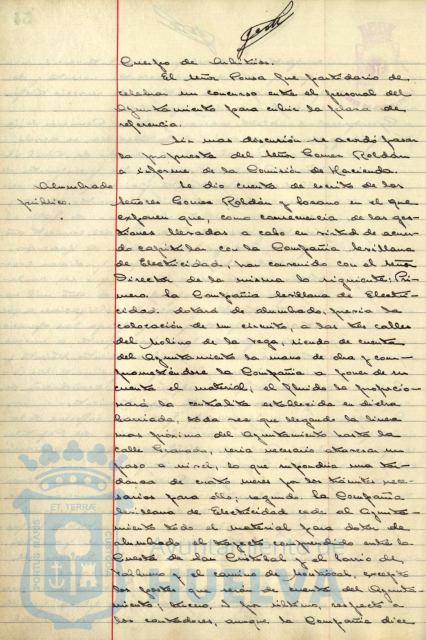 Cuerpo de Arbitrios.
El señor Ponsa fue partidario de
celebrar un concurso entre el personal del
Ayuntamiento para cubrir la plaza de
referencia.
Sin mas discusión se acordó pasar
la propuesta del señor Gomez Roldán
a informe de la Comisión de Hacienda.
Alumbrado
público.
Se dio cuenta de escrito de los
señores Gomez Roldán y Lozano en el que
exponen que, como consecuencia de las ges-
tiones llevadas a cabo en virtud de acuer-
do capitular con la Compañía Sevillana
de Electricidad, han convenido con el señor
Director de la misma lo siguiente: Pri-
mero. la Compañía Sevillana de Electri-
cidad. dotará de alumbrado, previa la
colocación de un circuito, a las tres calles
del Molino de la Vega, siendo de cuenta
del Ayuntamiento la mano de obra y com-
prometiéndose la Compañía a poner de su
cuenta el material; el fluido lo proporcio-
nará la centralita establecida en dicha
barriada, toda vez que llegando la linea
mas próxima del Ayuntamiento hasta la
calle Granado, sería necesario atravesar un
paso a nivel, lo que supondria una tar-
danza de cuatro meses por los trámites nece-
sarios para ello; segundo. la Compañía
Sevillana de Electricidad cede al Ayunta-
miento todo el material para dotar de
alumbrado el trayecto comprendido entre la
Cuesta de San Cristobal y el barrio de
y el camino de excepto
los postes que serán de cuenta del Ayunta-
miento; tercero. Y por último, respecto a
los contadores, aunque la Compañía dice
PORTUS MARIS ET TERRAE CUSTODIA
Ayuntamiento de
HUELVA